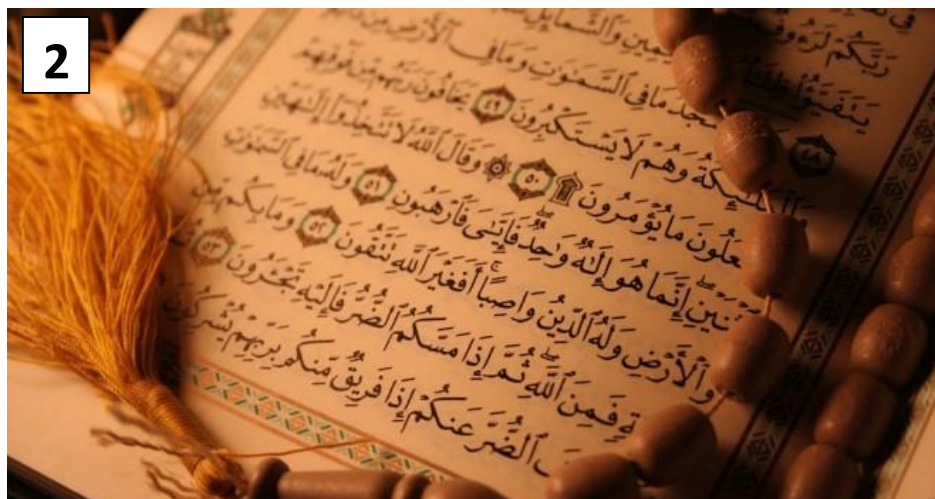 2
فِي
رَبَّكُمْ لَرَءُوفٌ
يَتَفَيَّؤُاْ وَٱلشَّمَآئِلِ
٤٨ مَا فِي ٱلسَّمَٰوَٰتِ وَمَا فِي ٱلْأَرْضِ مِن
وَٱلْمَلَٰٓئِكَةُ وَهُمْ لَا يَسْتَكْبِرُونَ ٤٩ يَخَافُونَ رَبَّهُم مِّن فَوْقِهِمْ
مَا يُؤْمَرُونَ ۩ ٥٠ ۞ وَقَالَ ٱللَّهُ لَا تَتَّخِذُوٓاْ إِلَٰهَيْنِ
إِنَّمَا هُوَ إِلَٰهٌ وَٰحِدٌ فَإِيَّٰيَ فَٱرْهَبُونِ ٥١ وَلَهُۥ مَا فِي ٱلسَّمَٰوَٰتِ
وَٱلْأَرْضِ وَلَهُ ٱلدِّينُ وَاصِبًا ۚ أَفَغَيْرَ ٱللَّهِ تَتَّقُونَ ٥٢ وَمَا بِكُم مِّن
فَمِنَ ٱللَّهِ ۖ ثُمَّ إِذَا مَسَّكُمُ ٱلضُّرُّ فَإِلَيْهِ تَجْـَٔرُونَ ٥٣
ٱلضُّرَّ عَنكُمْ إِذَا فَرِيقٌ مِّنكُم بِرَبِّهِمْ يُشْرِكُونَ